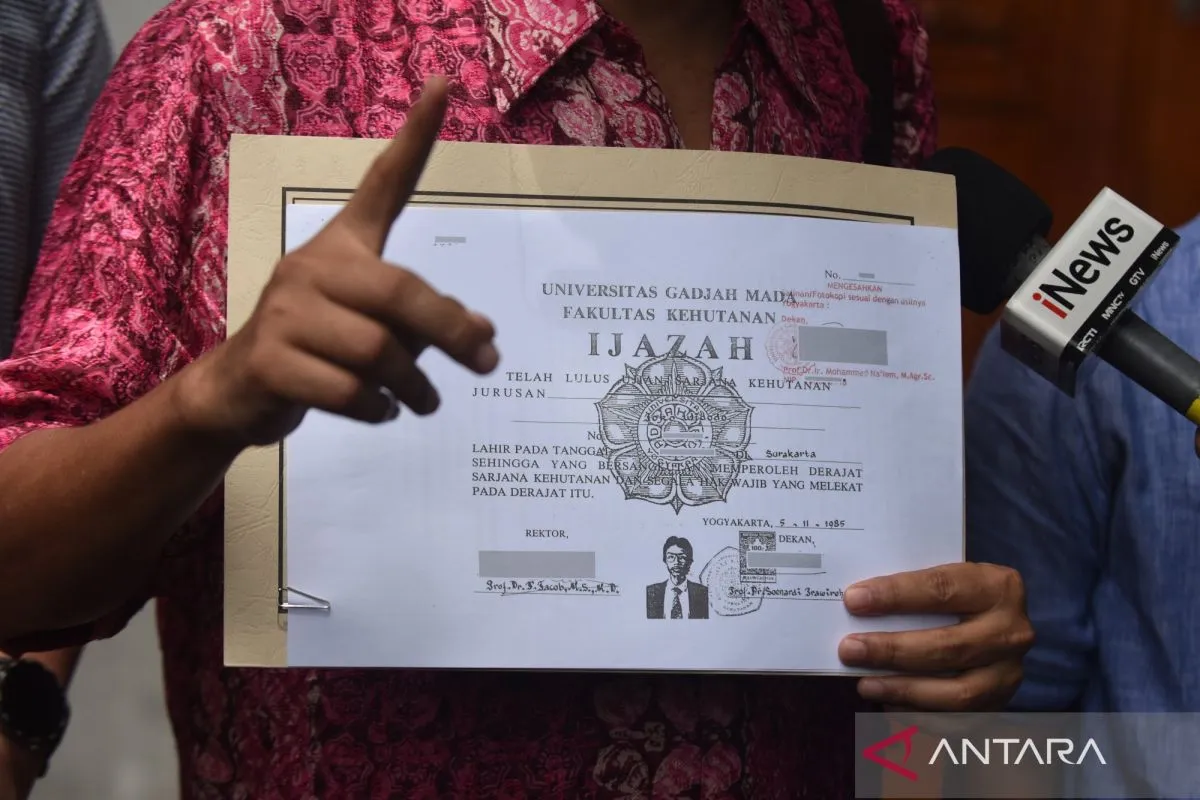 No.
UNIVERSITAS GADJAH MADA
FAKULTAS KEHUTANAN
IJAZAH
MENGESAHKAN
sesuai dengan aslinya
Yogyakarta :
Dekan,
Prof.Dr.Ir. Mohammad Na'iem, M.Agr.Sc.
TELAH LULUS UJIAN SARJANA KEHUTANAN
JURUSAN
No
LAHIR PADA TANGGAL DI Surakarta
SEHINGGA YANG BERSANGKUTAN MEMPEROLEH DERAJAT
SARJANA KEHUTANAN DAN SEGALA HAK WAJIB YANG MELEKAT
PADA DERAJAT ITU.
YOGYAKARTA, 5 - 11 - 1985
REKTOR,
DEKAN,
Prof. Dr. T. Jacob, M.S., M.D.
Prof. Dr. Soenardi
100
iNews
RCTI MNCTV GTV iNews
ANTARA